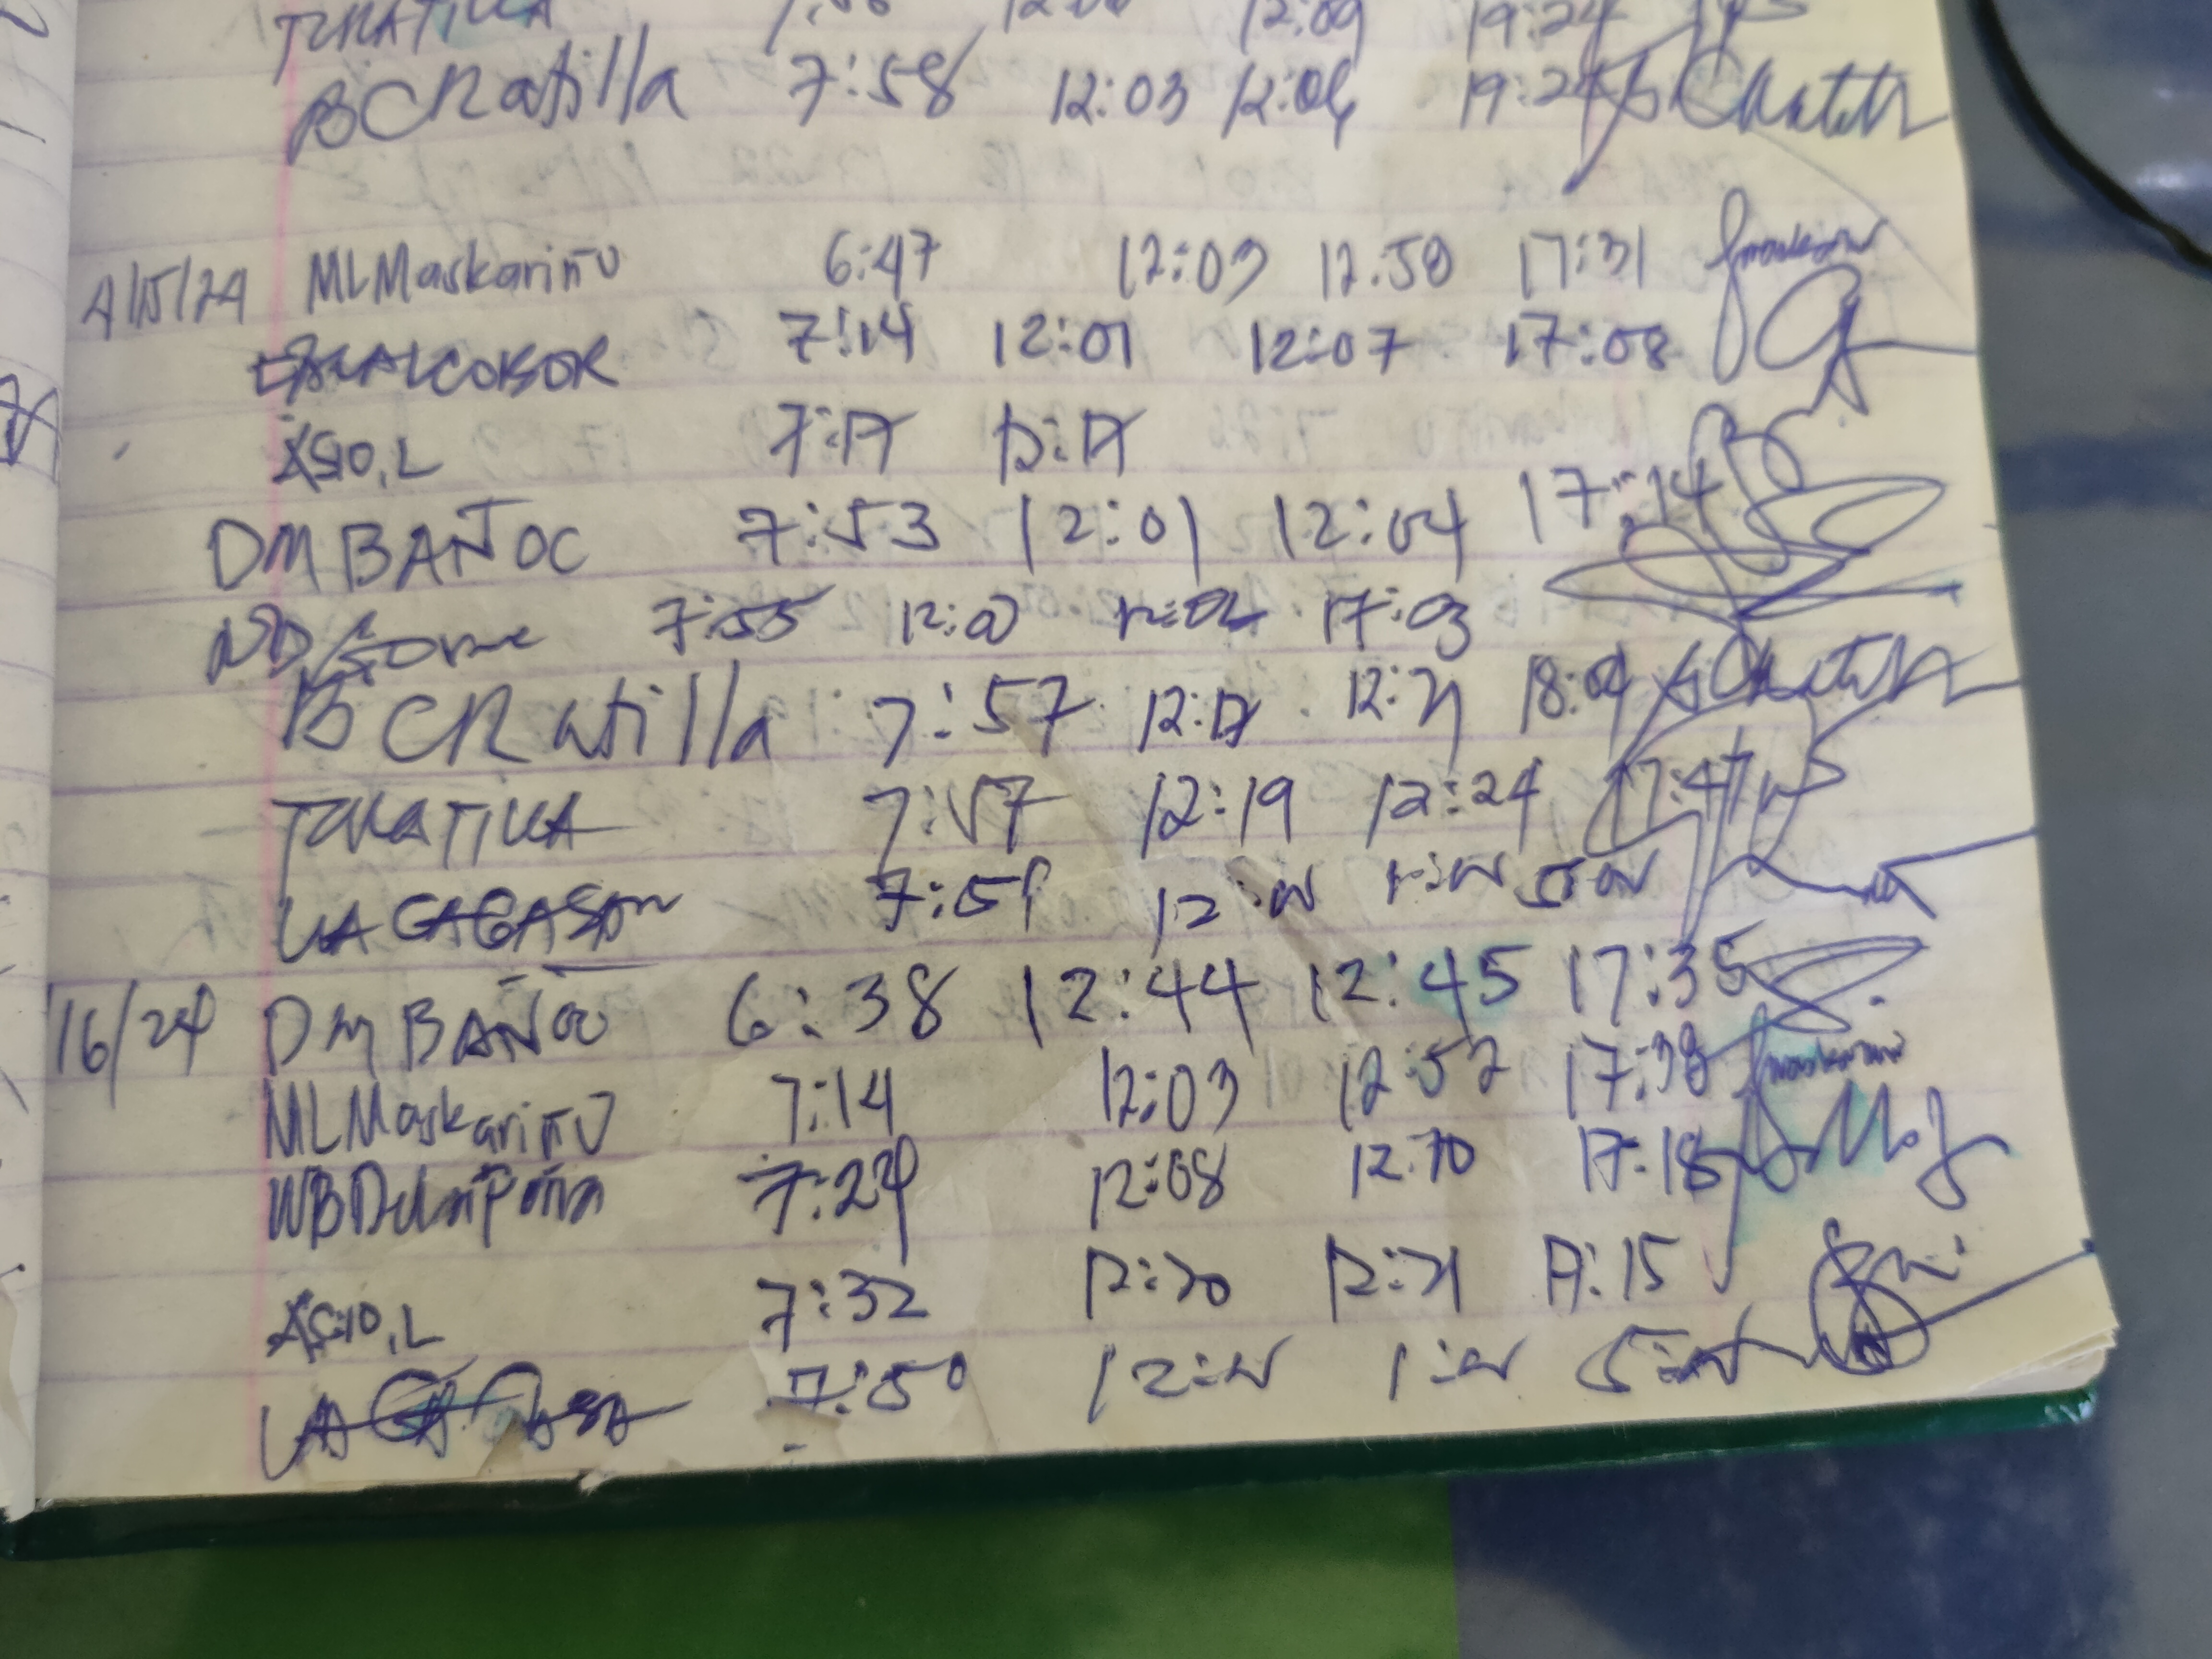 12:09 19:24
BCRatilla 7:58 12:03 12:06 19:24
4/15/24 MLMaskariño 6:47 12:03 12.50 17:31
7:14 12:01 12:07 17:08
ASIO, L 7:17 12:17
DM BAÑOC 7:53 12:01 12:04 17:14
7:55 12:00 12:02 17:03
BCRatilla 7:57 12:17 12:21 18:04
TCRATILLA 7:57 12:19 12:24 17:47
7:59 12:00 1:00 5:00
16/24 DM BAÑOC 6:38 12:44 12:45 17:35
MLMaskariño 7:14 12:03 12:52 17:38
WBDelaPeña 7:24 12:08 12:10 17:18
ASIO, L 7:32 12:20 12:21 17:15
7:50 12:00 1:00 5:00